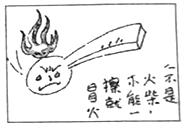 人不是
火柴，
不能一
擦就
冒火